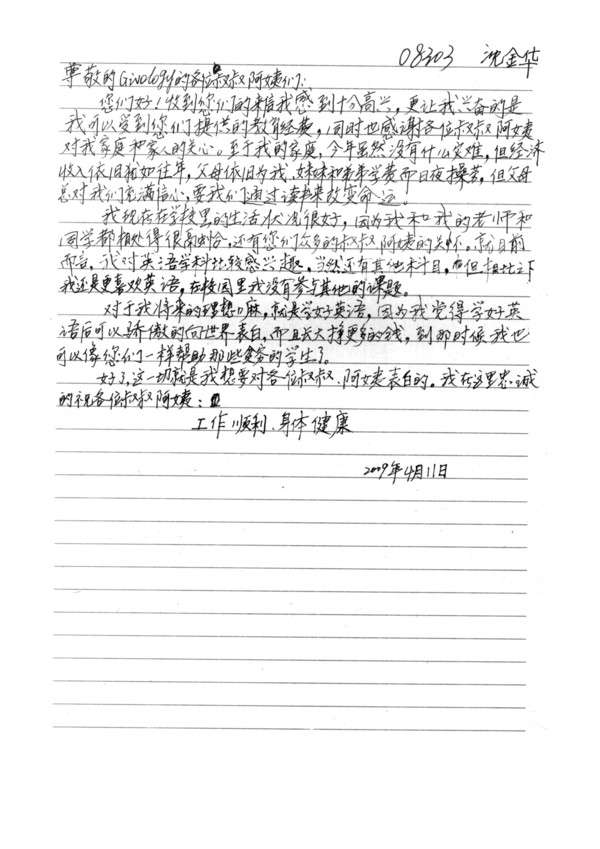 08303 沈金华
尊敬的Givology的各位叔叔阿姨们:
您们好!收到您们的来信我感到十分高兴,更让我兴奋的是
我可以受到您们提供的教育经费,同时也感谢各位叔叔阿姨
对我家庭和家人的关心。至于我的家庭,今年虽然没有什么灾难,但经济
收入依旧就如往年,父母依旧为我、妹妹和弟弟学费而日夜操劳,但父母
总对我们充满信心,要我们通过读书来改变命运。
我现在在学校里的生活状况很好,因为我和我的老师和
同学都相处得很融合,还有您们众多的叔叔阿姨的关怀。就目前
而言,我对英语学科比较感兴趣,当然还有其他科目,但相比之下
我还是更喜欢英语,在校园里我没有参与其他的课题。
对于我将来的理想嘛,就是学好英语,因为我觉得学好英
语后可以骄傲的向世界表白,而且长大挣更多的钱,到那时候我也
可以像您们一样帮助那些贫穷的学生了。
好了,这一切就是我想要对各位叔叔、阿姨表白的。我在这里忠诚
的祝各位叔叔阿姨:
工作顺利、身体健康
2009年4月11日